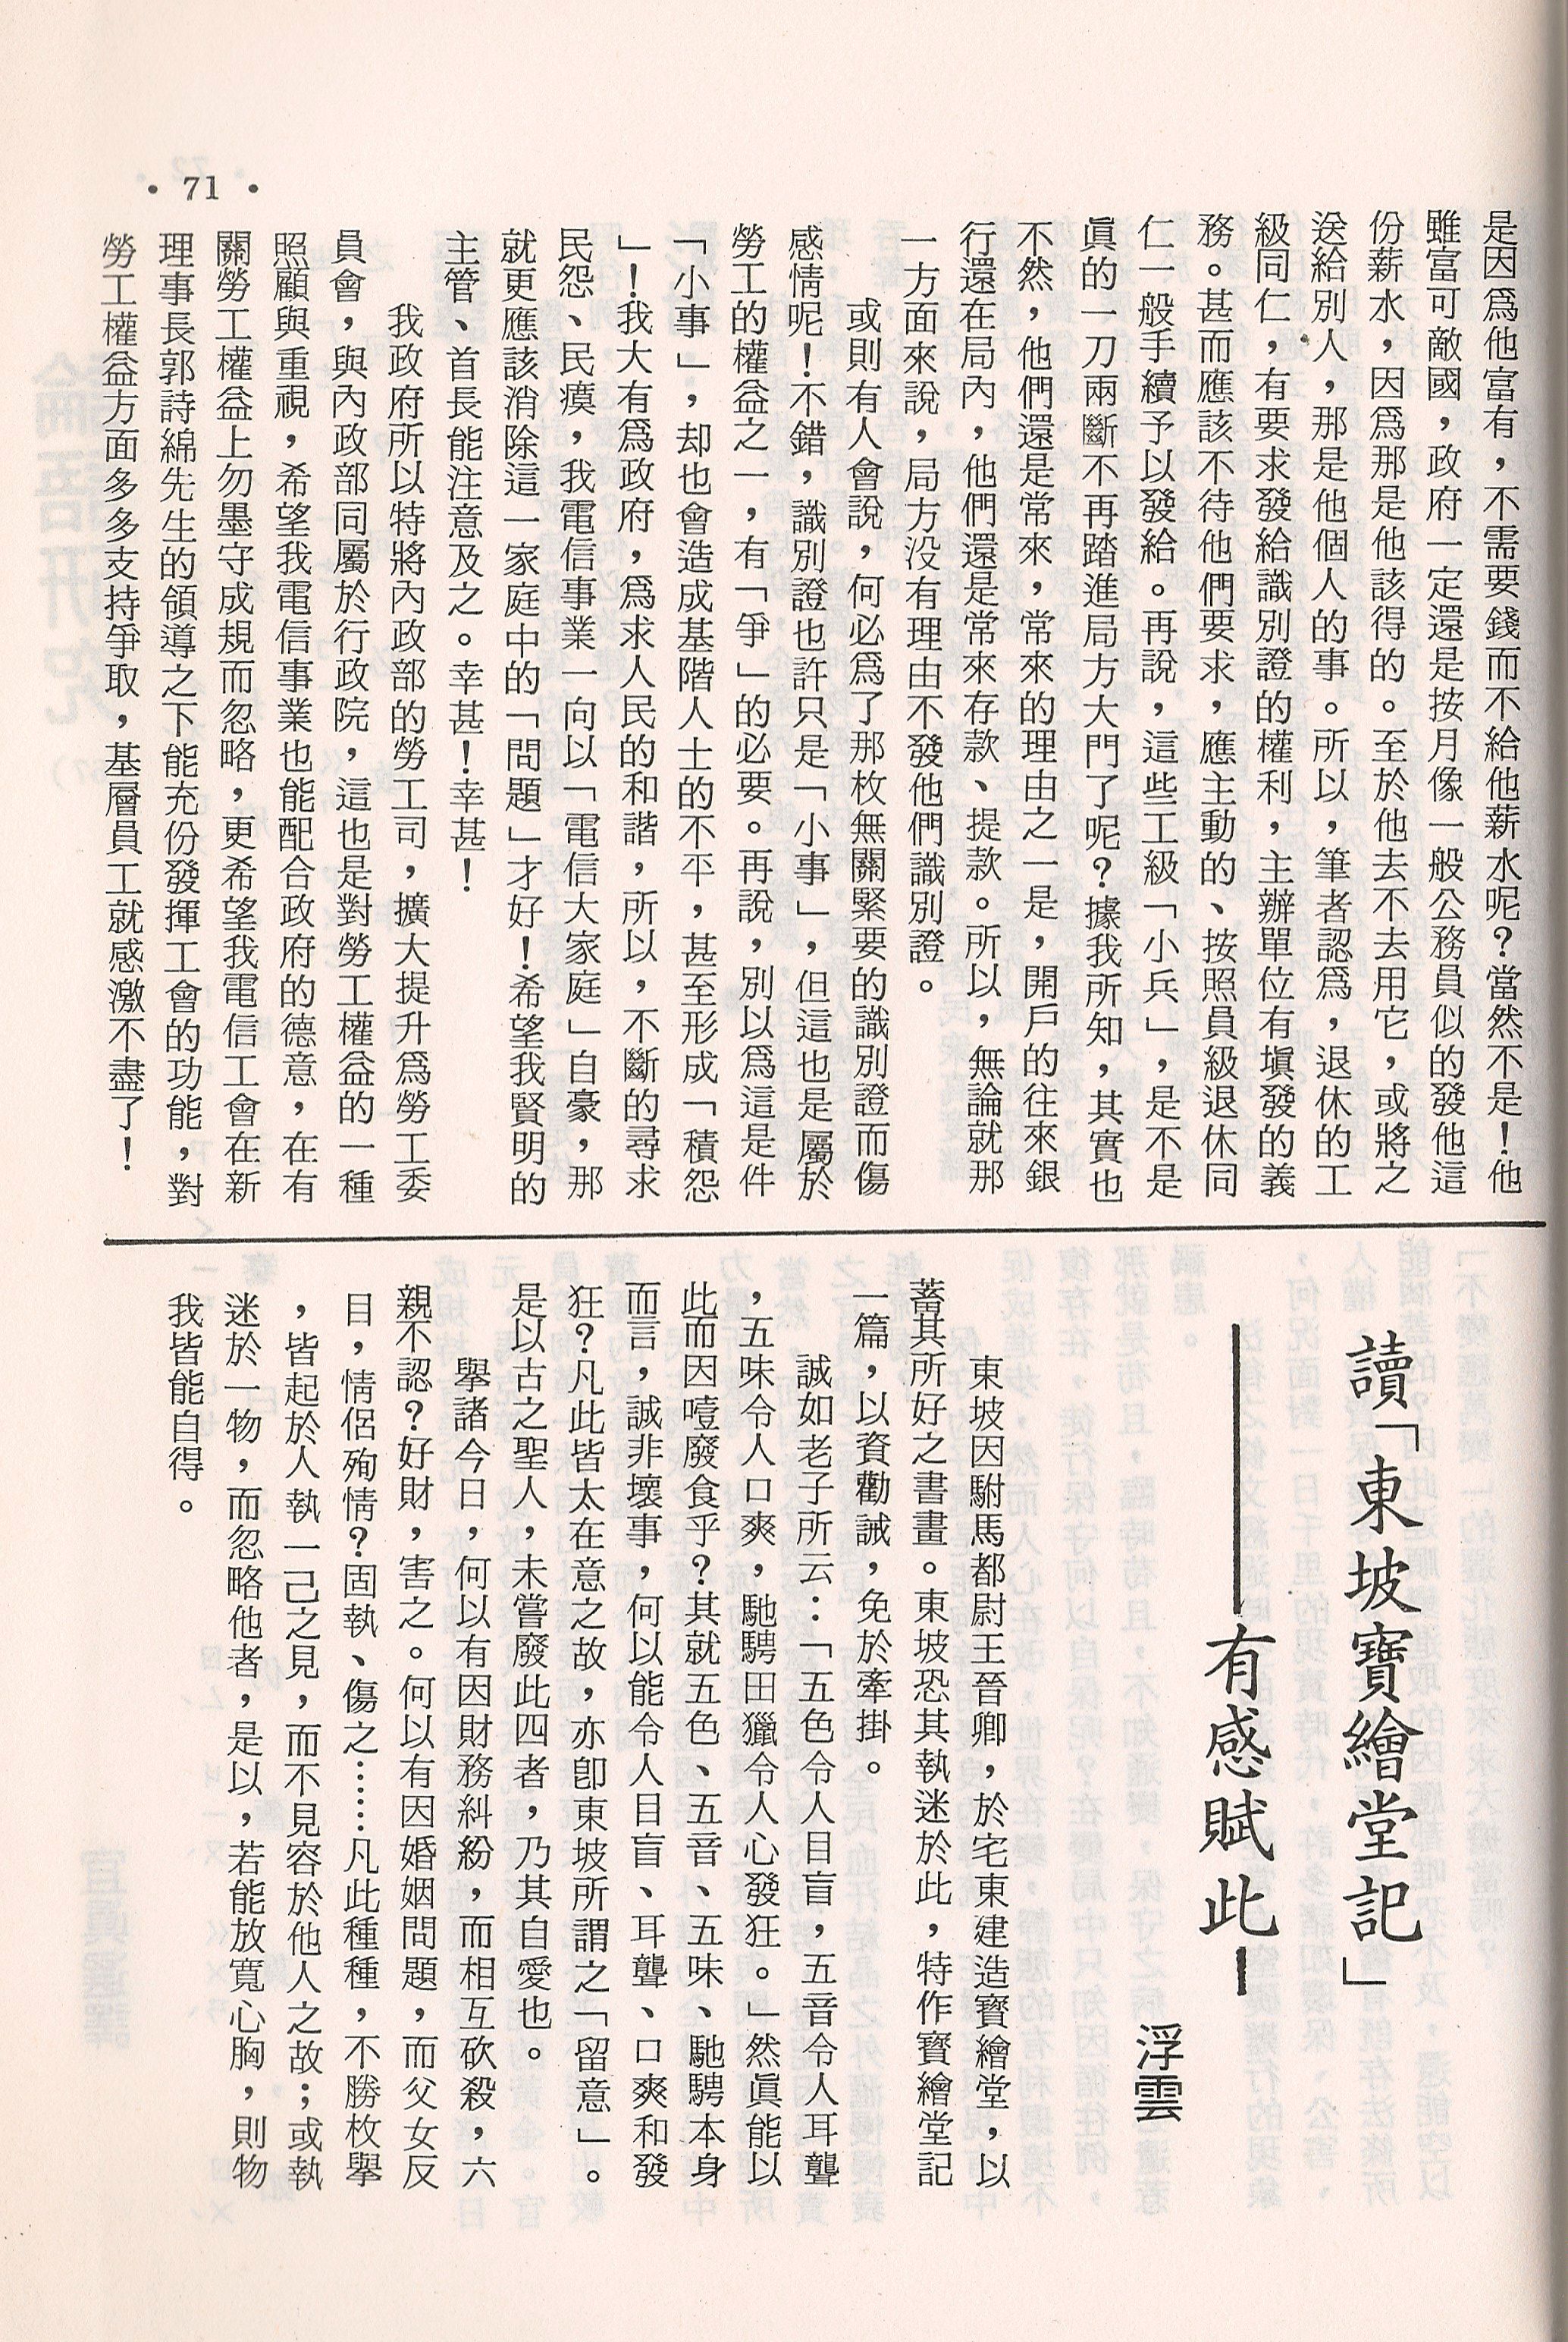 • 71 •
是因爲他富有，不需要錢而不給他薪水呢？當然不是！他
雖富可敵國，政府一定還是按月像一般公務員似的發他這
份薪水，因爲那是他該得的。至於他去不去用它，或將之
送給別人，那是他個人的事。所以，筆者認爲，退休的工
級同仁，有要求發給識別證的權利，主辦單位有塡發的義
務。甚而應該不待他們要求，應主動的、按照員級退休同
仁一般手續予以發給。再說，這些工級「小兵」，是不是
眞的一刀兩斷不再踏進局方大門了呢？據我所知，其實也
不然，他們還是常來，常來的理由之一是，開戶的往來銀
行還在局內，他們還是常來存款、提款。所以，無論就那
一方面來說，局方没有理由不發他們識別證。
或則有人會說，何必爲了那枚無關緊要的識別證而傷
感情呢！不錯，識別證也許只是「小事」，但這也是屬於
勞工的權益之一，有「爭」的必要。再說，別以爲這是件
「小事」，却也會造成基階人士的不平，甚至形成「積怨
」！我大有爲政府，爲求人民的和諧，所以，不斷的尋求
民怨、民瘼，我電信事業一向以「電信大家庭」自豪，那
就更應該消除這一家庭中的「問題」才好！希望我賢明的
主管、首長能注意及之。幸甚！幸甚！
我政府所以特將內政部的勞工司，擴大提升爲勞工委
員會，與內政部同屬於行政院，這也是對勞工權益的一種
照顧與重視，希望我電信事業也能配合政府的德意，在有
關勞工權益上勿墨守成規而忽略，更希望我電信工會在新
理事長郭詩綿先生的領導之下能充份發揮工會的功能，對
勞工權益方面多多支持爭取，基層員工就感激不盡了！
讀「東坡寶繪堂記」
——有感賦此—
浮雲
東坡因駙馬都尉王晉卿，於宅東建造寶繪堂，以
蓄其所好之書畫。東坡恐其執迷於此，特作寶繪堂記
一篇，以資勸誡，免於牽掛。
誠如老子所云：「五色令人目盲，五音令人耳聾
，五味令人口爽，馳騁田獵令人心發狂。」然眞能以
此而因噎廢食乎？其就五色、五音、五味、馳騁本身
而言，誠非壞事，何以能令人目盲、耳聾、口爽和發
狂？凡此皆太在意之故，亦卽東坡所謂之「留意」。
是以古之聖人，未嘗廢此四者，乃其自愛也。
舉諸今日，何以有因財務糾紛，而相互砍殺，六
親不認？好財，害之。何以有因婚姻問題，而父女反
目，情侶殉情？固執、傷之……凡此種種，不勝枚舉
，皆起於人執一己之見，而不見容於他人之故；或執
迷於一物，而忽略他者，是以，若能放寬心胸，則物
我皆能自得。